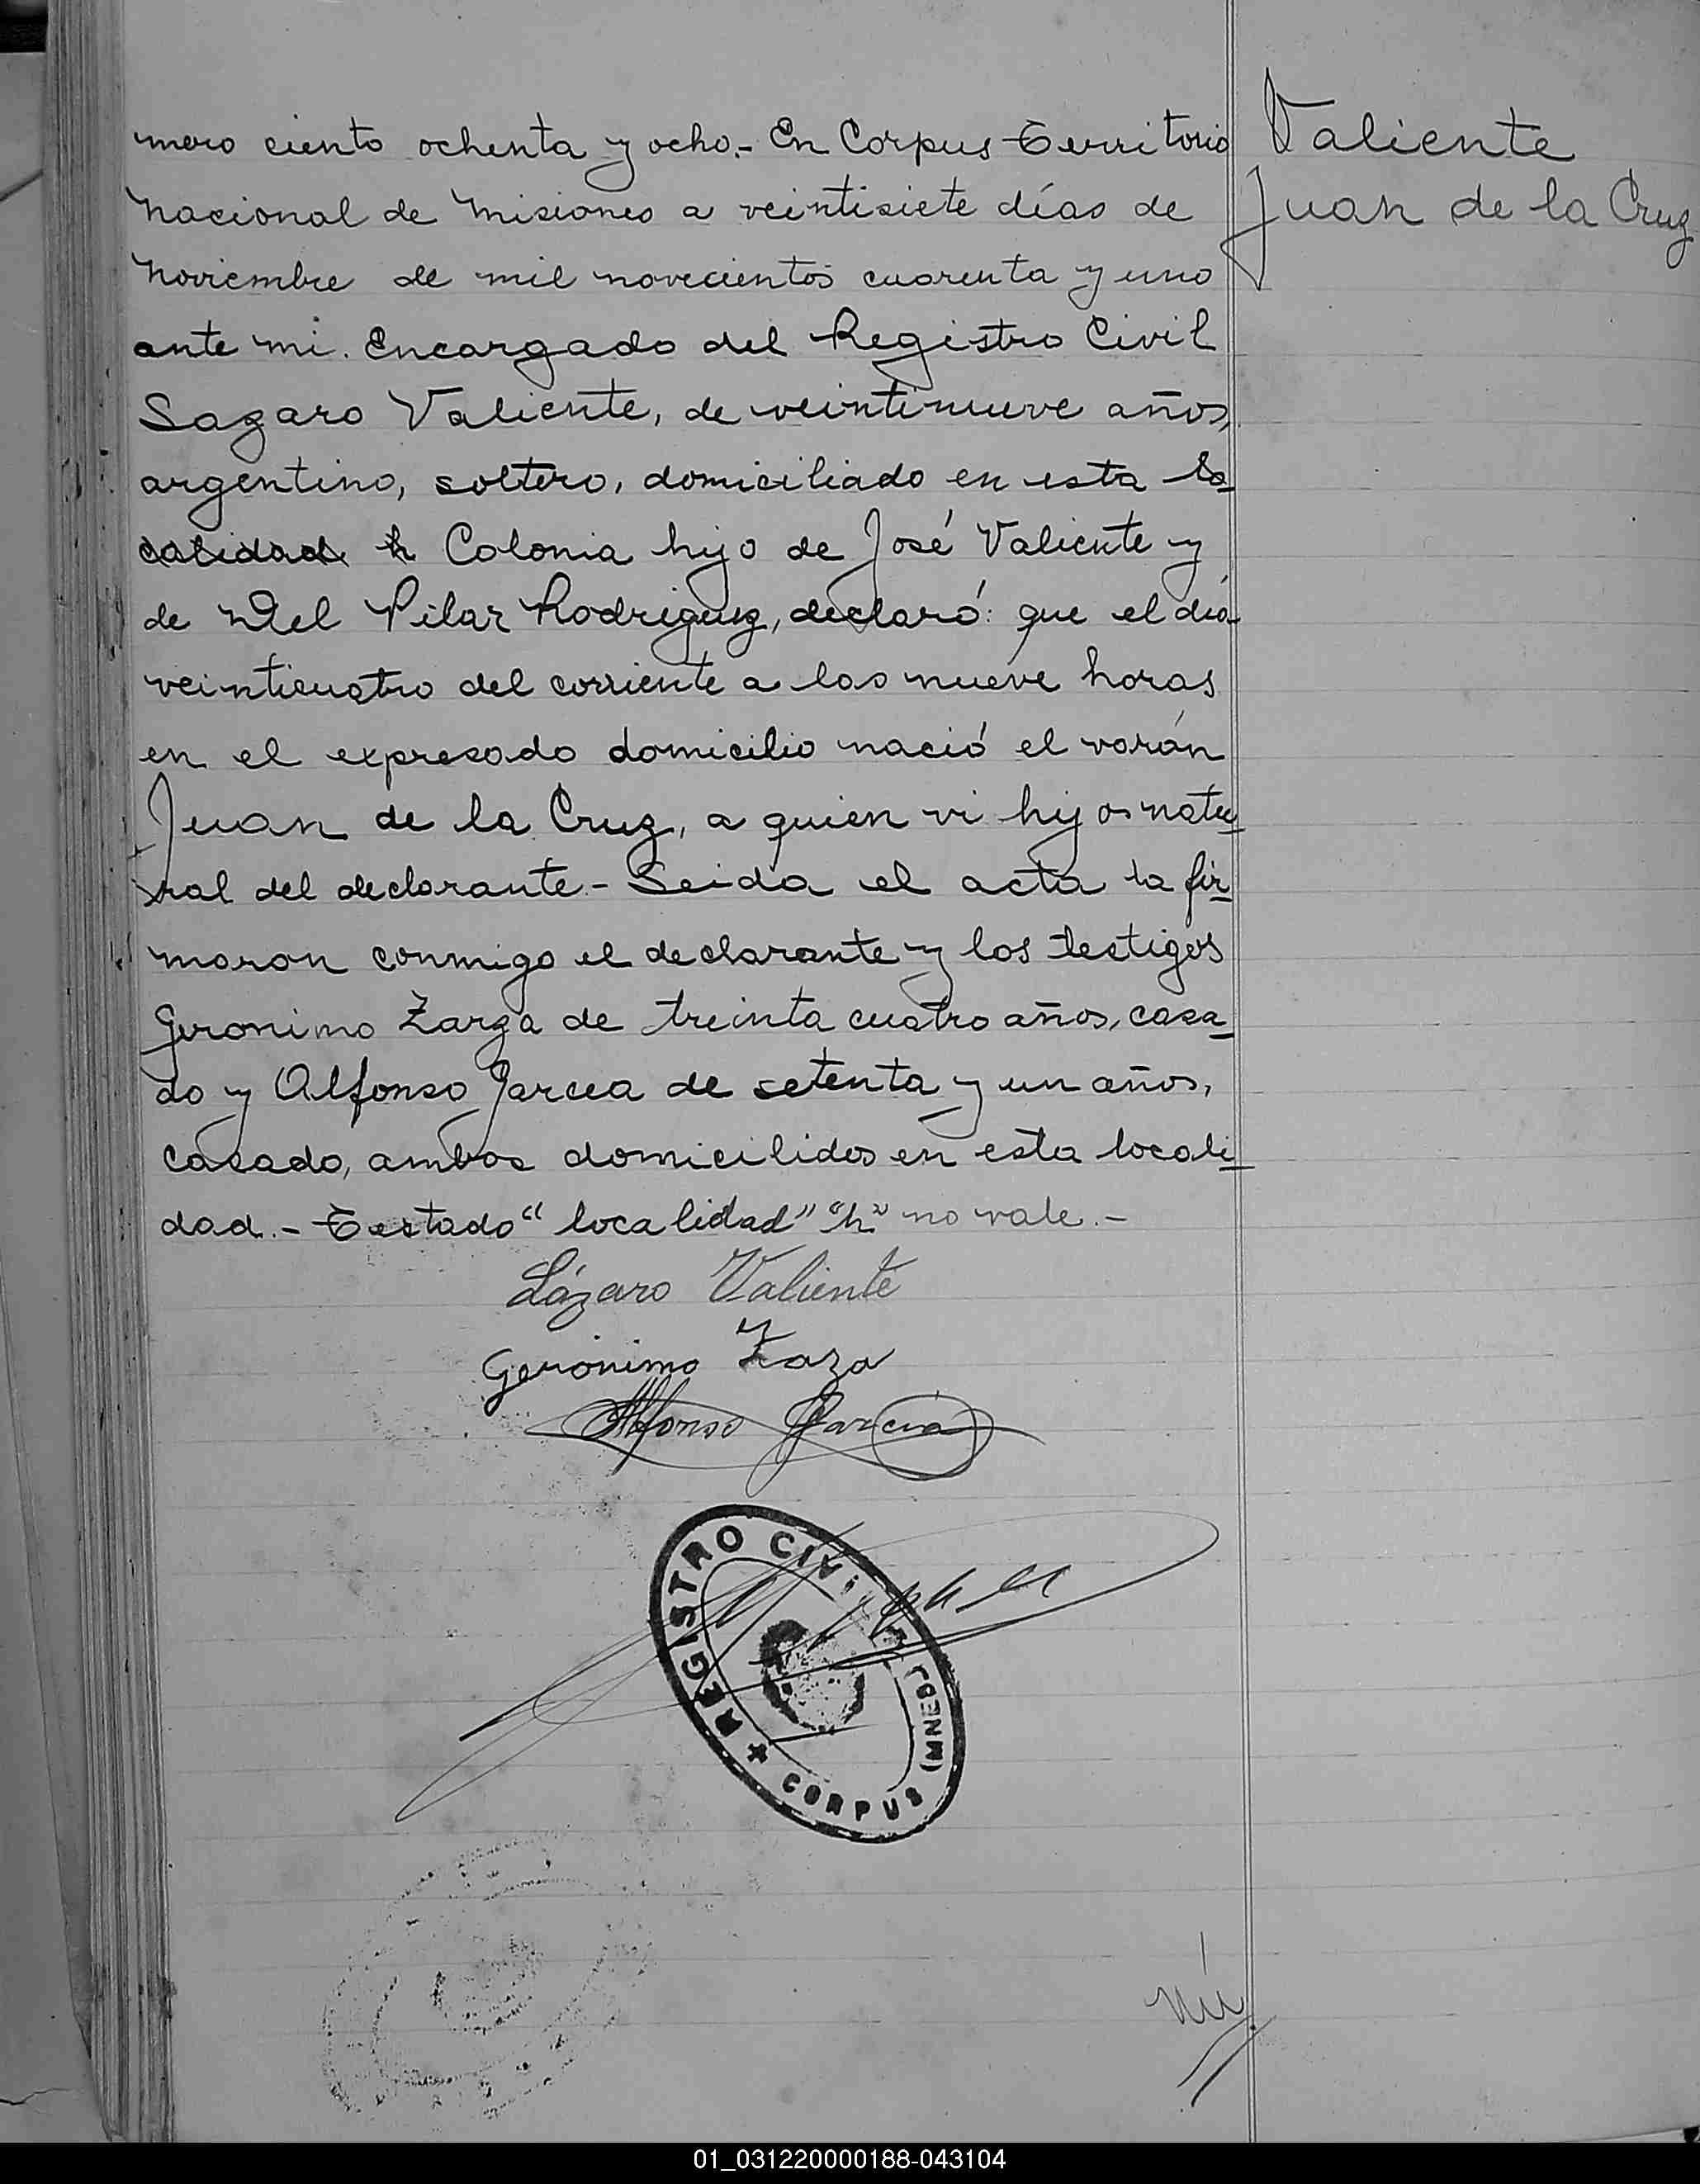 mero ciento ochenta y ocho.- En Corpus Territorio
Nacional de Misiones a veintisiete días de
Noviembre de mil novecientos cuarenta y uno
ante mi. Encargado del Registro Civil
Lazaro Valiente, de veintinueve años,
argentino, soltero, domiciliado en esta lo
calidad h Colonia hijo de José Valiente y
de Del Pilar Rodriguez, declaró: que el día
veinticuatro del corriente a las nueve horas
en el expresado domicilio nació el varón
Juan de la Cruz, a quien vi hijo natu
ral del declarante.- Leida el acta la fir
maron conmigo el declarante y los testigos
Geronimo Zarza de treinta cuatro años, casa
do y Alfonso Garcia de setenta y un años,
casado, ambos domicilidos en esta locali
dad.- Testado "localidad" "h" no vale.-
Valiente
Juan de la Cruz
Lázaro Valiente
Geronimo Zaza
Alfonso Garcia
REGISTRO CIVIL
CORPUS (MNES)
Nú
01_031220000188-043104